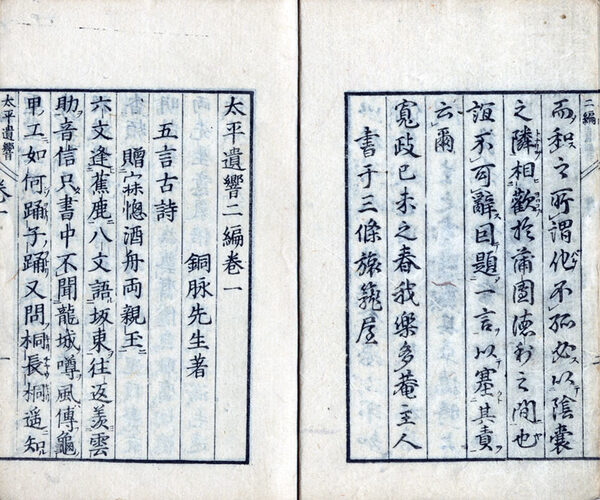 二編
而和之所謂他不孤必以陰囊
之隣相歡於蒲團德利之間也
誼不可辭因題一言以塞其責
云爾
寬政己未之春我樂多菴主人
書于三條旅籠屋
太平遺響二編卷一
銅脉先生著
五言古詩
贈寐惚酒舟両親玉
六文逢蕉鹿八文語坂東往返羨雲
助音信只書中不聞龍城噂風傳龜
甲工如何踊子踊又問桐長桐遥知
太平遺響
卷一